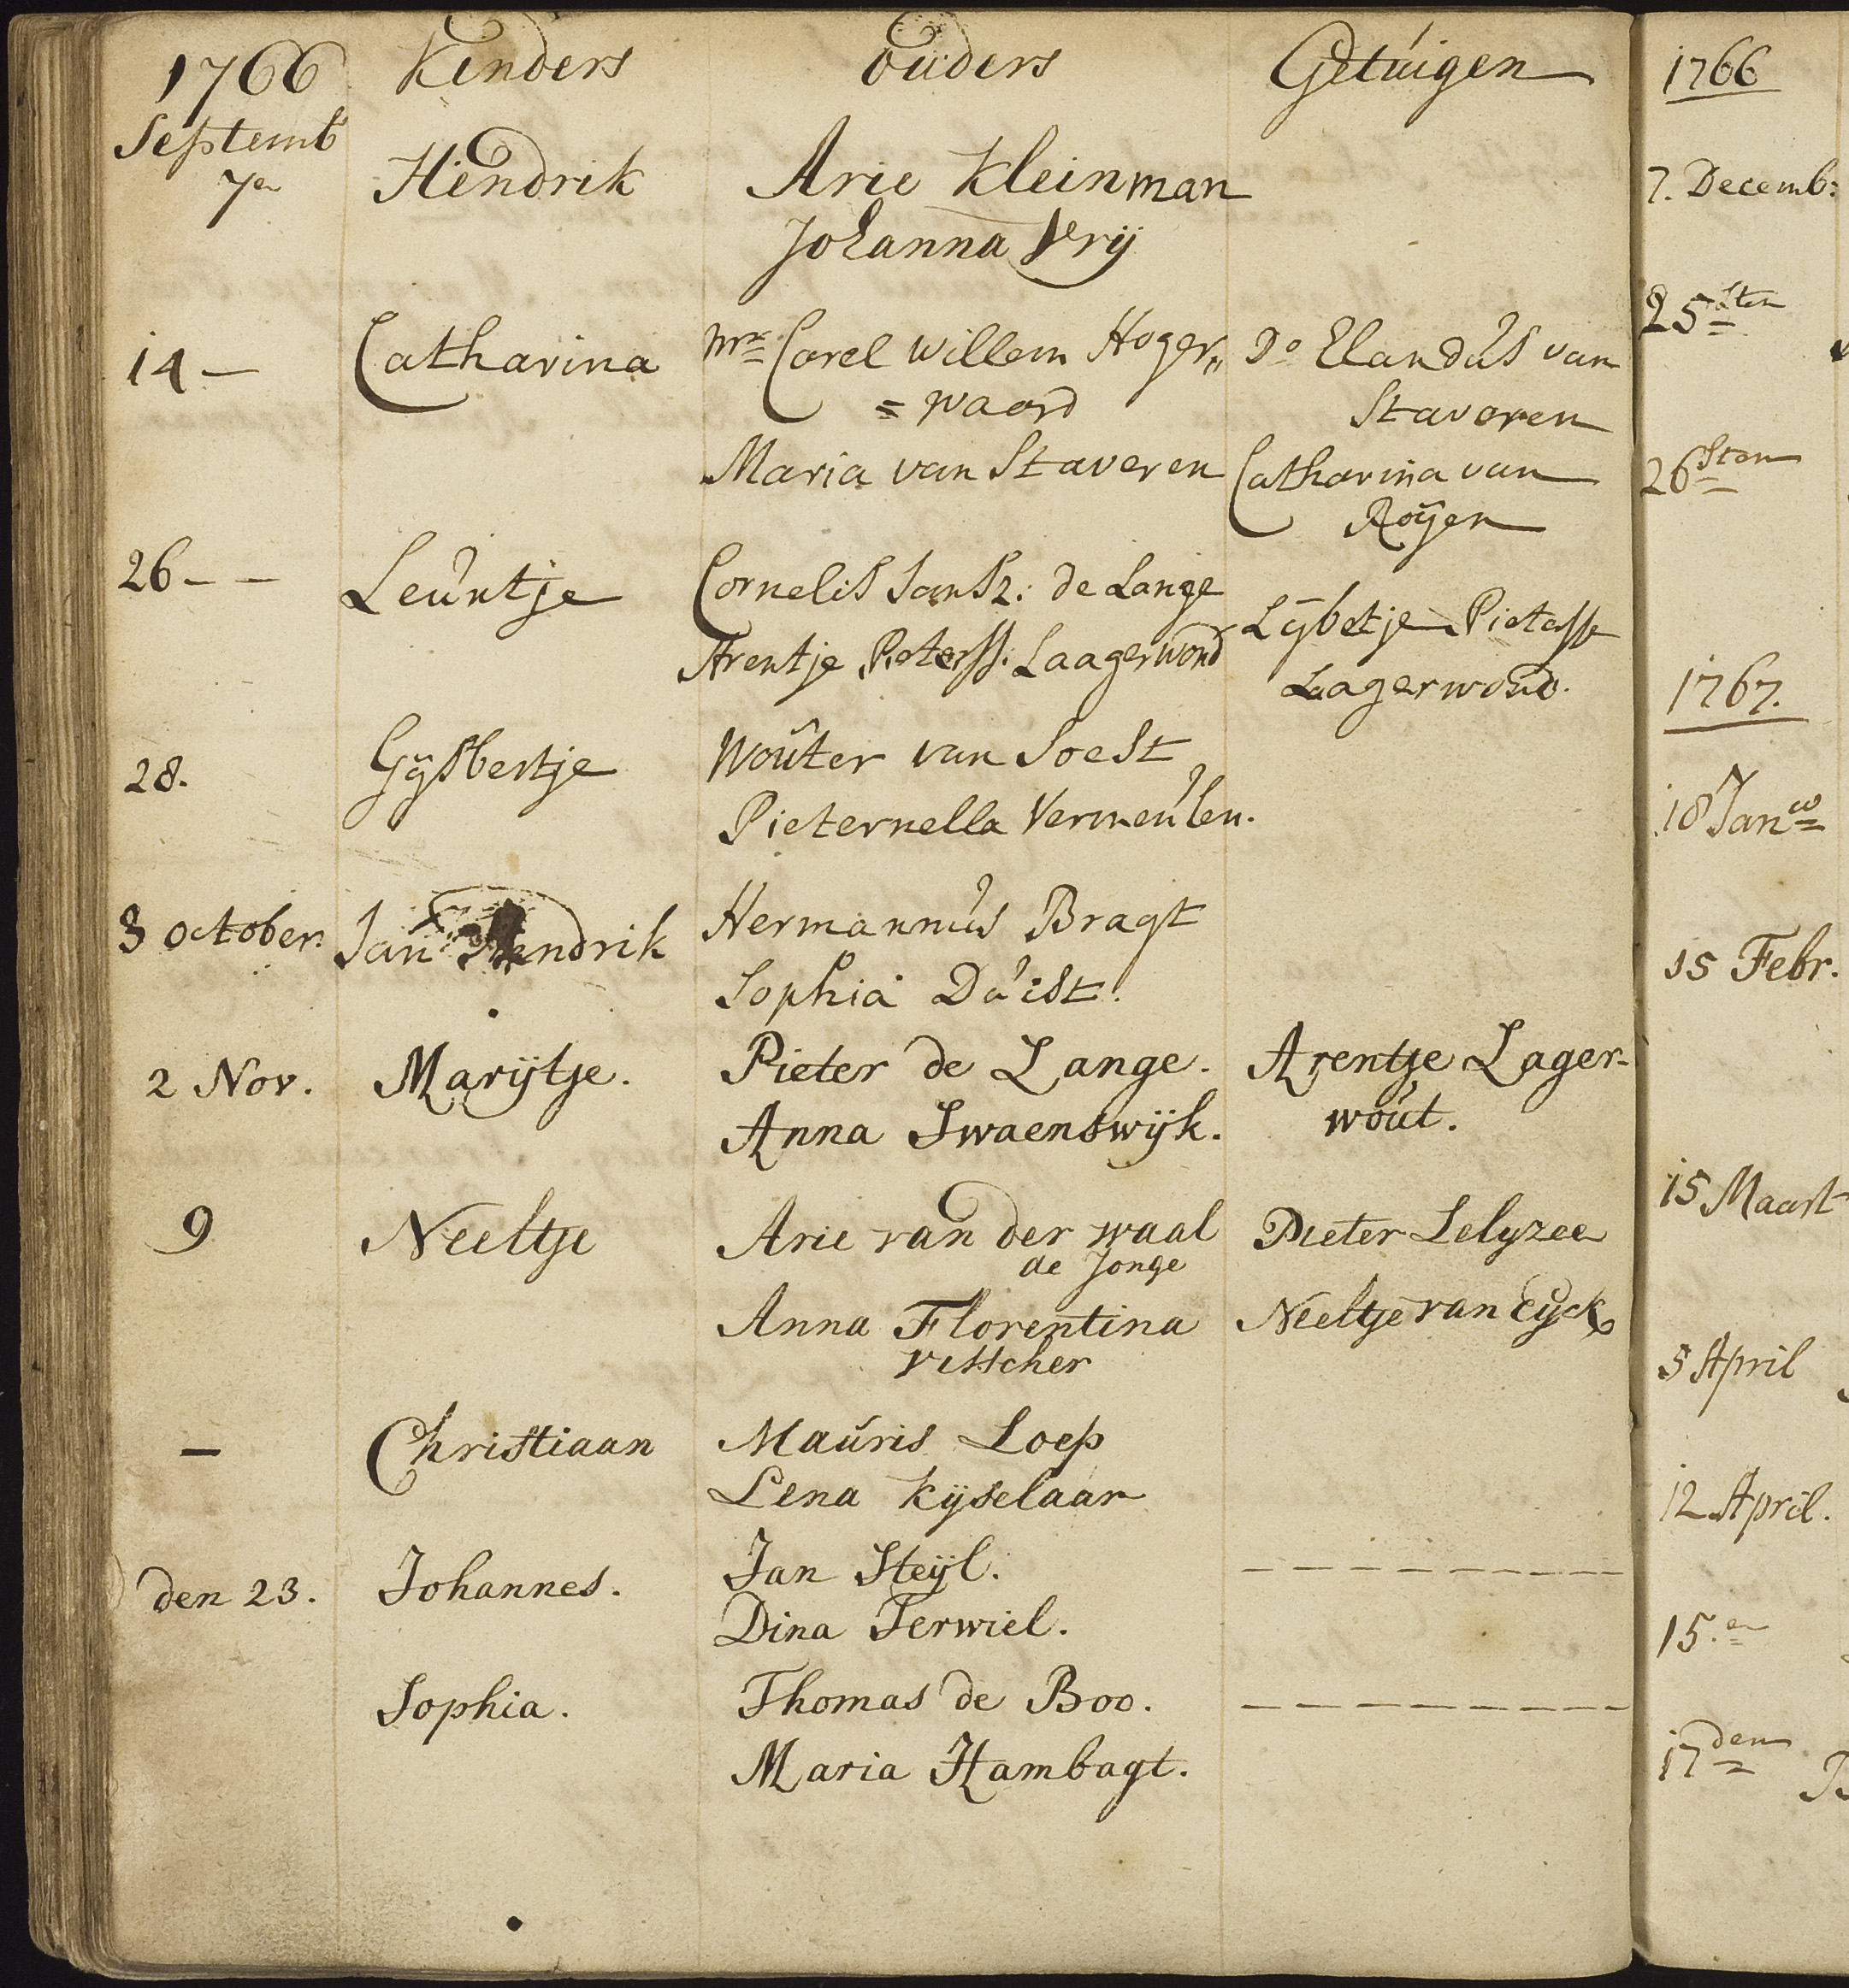 1766 Kinders Ouders Getuigen
Septemb
7en Hendrik Arie Kleinman
Johanna Vrij
14 – Catharina Mr Carel Willem Hoger„ Do Elandus van
= waard Staveren
Maria van Staveren Catharina van
Roijen
26 – – Leuntje Cornelis Jansz: de Lange
Arentje Pieterss: Laagerwoud Lijbetje Pietersse
Laagerwoud.
28. Gijsbertje Wouter van Soest
Pieternella Vermeulen.
3 October. Jan Hendrik Hermannus Bragt
Sophia Duist.
2 Nov. Marijtje. Pieter de Lange. Arentje Lager-
Anna Swaenswijk. wout.
9 Neeltje Arie van der waal Pieter Lelyzee
de Jonge
Anna Florentina Neeltje van Eyck
visscher
– Christiaan Mauris Loep
Lena Kijselaar
den 23. Johannes. Jan Steijl. – – – – – – – – –
Dina Terwiel.
Sophia. Thomas de Boo. – – – – – – – – –
Maria Hambagt.
1766
7. Decemb:
25sten
26sten
1767.
18 Jan
15 Febr.
15 Maart
5 April
12 April.
15.en
17den